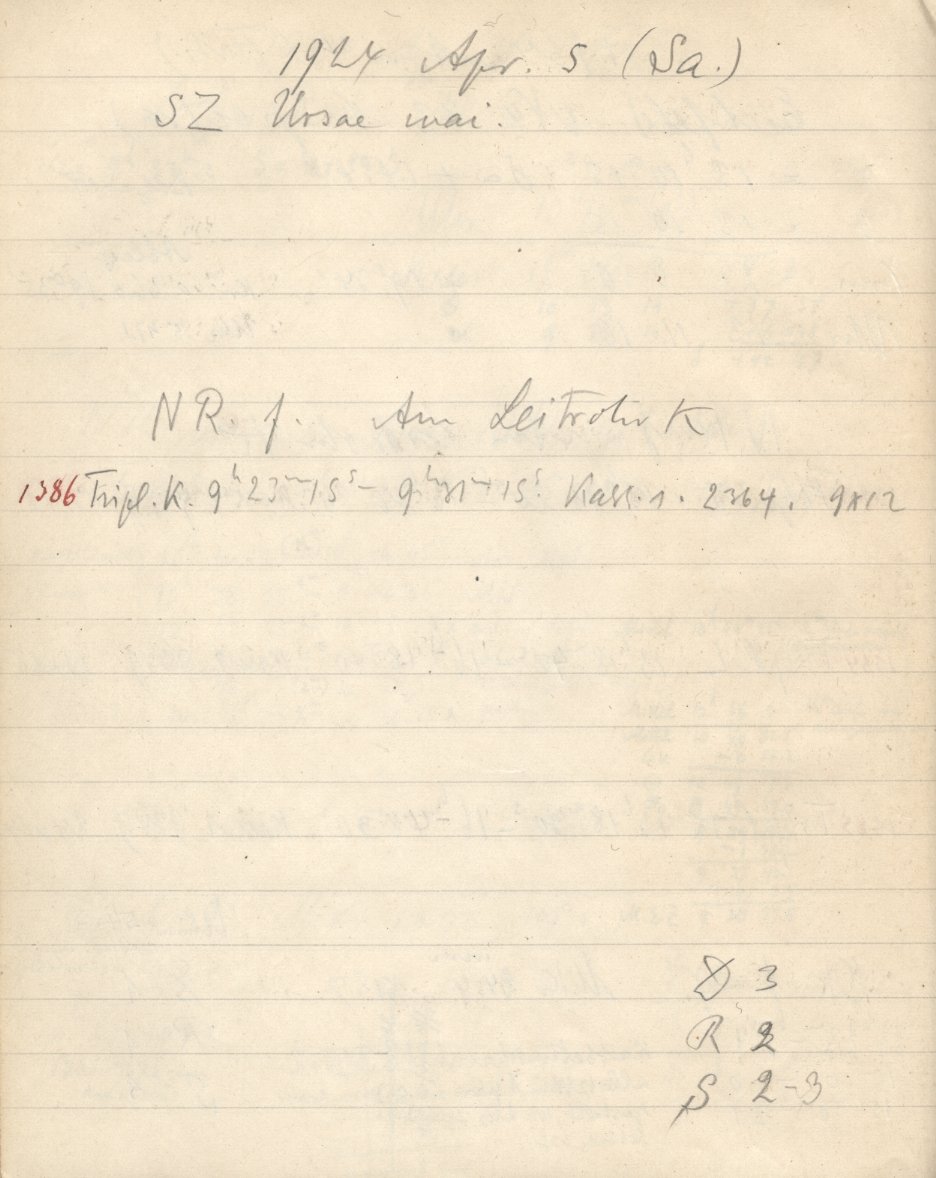 1924 Apr. 5 (Sa.)
SZ Ursae mai.
NR. f. Am Leitrohr K
1386 Tripl. K. 9ʰ23ᵐ15ˢ – 9ʰ31ᵐ15ˢ. Kass. 1. 2364. 9x12
D 3
R 2
S 2-3